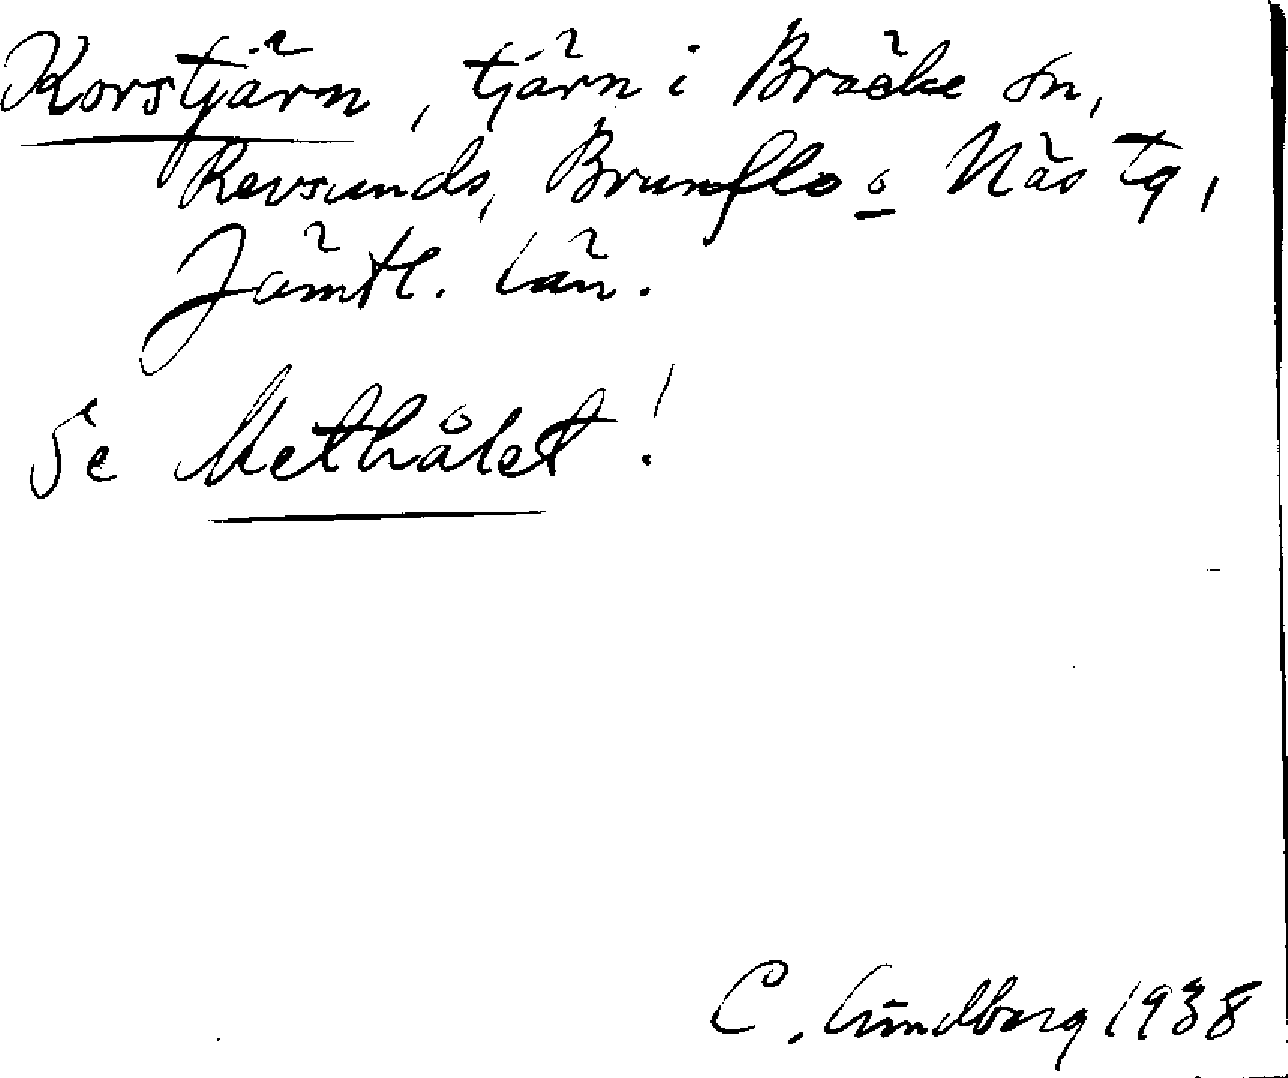 Korstjärn, tjärn i Bräcke sn,
Revsunds, Brunflo o Näs tg,
Jämtl. län.
Se Methålet!
C. Lindberg 1938